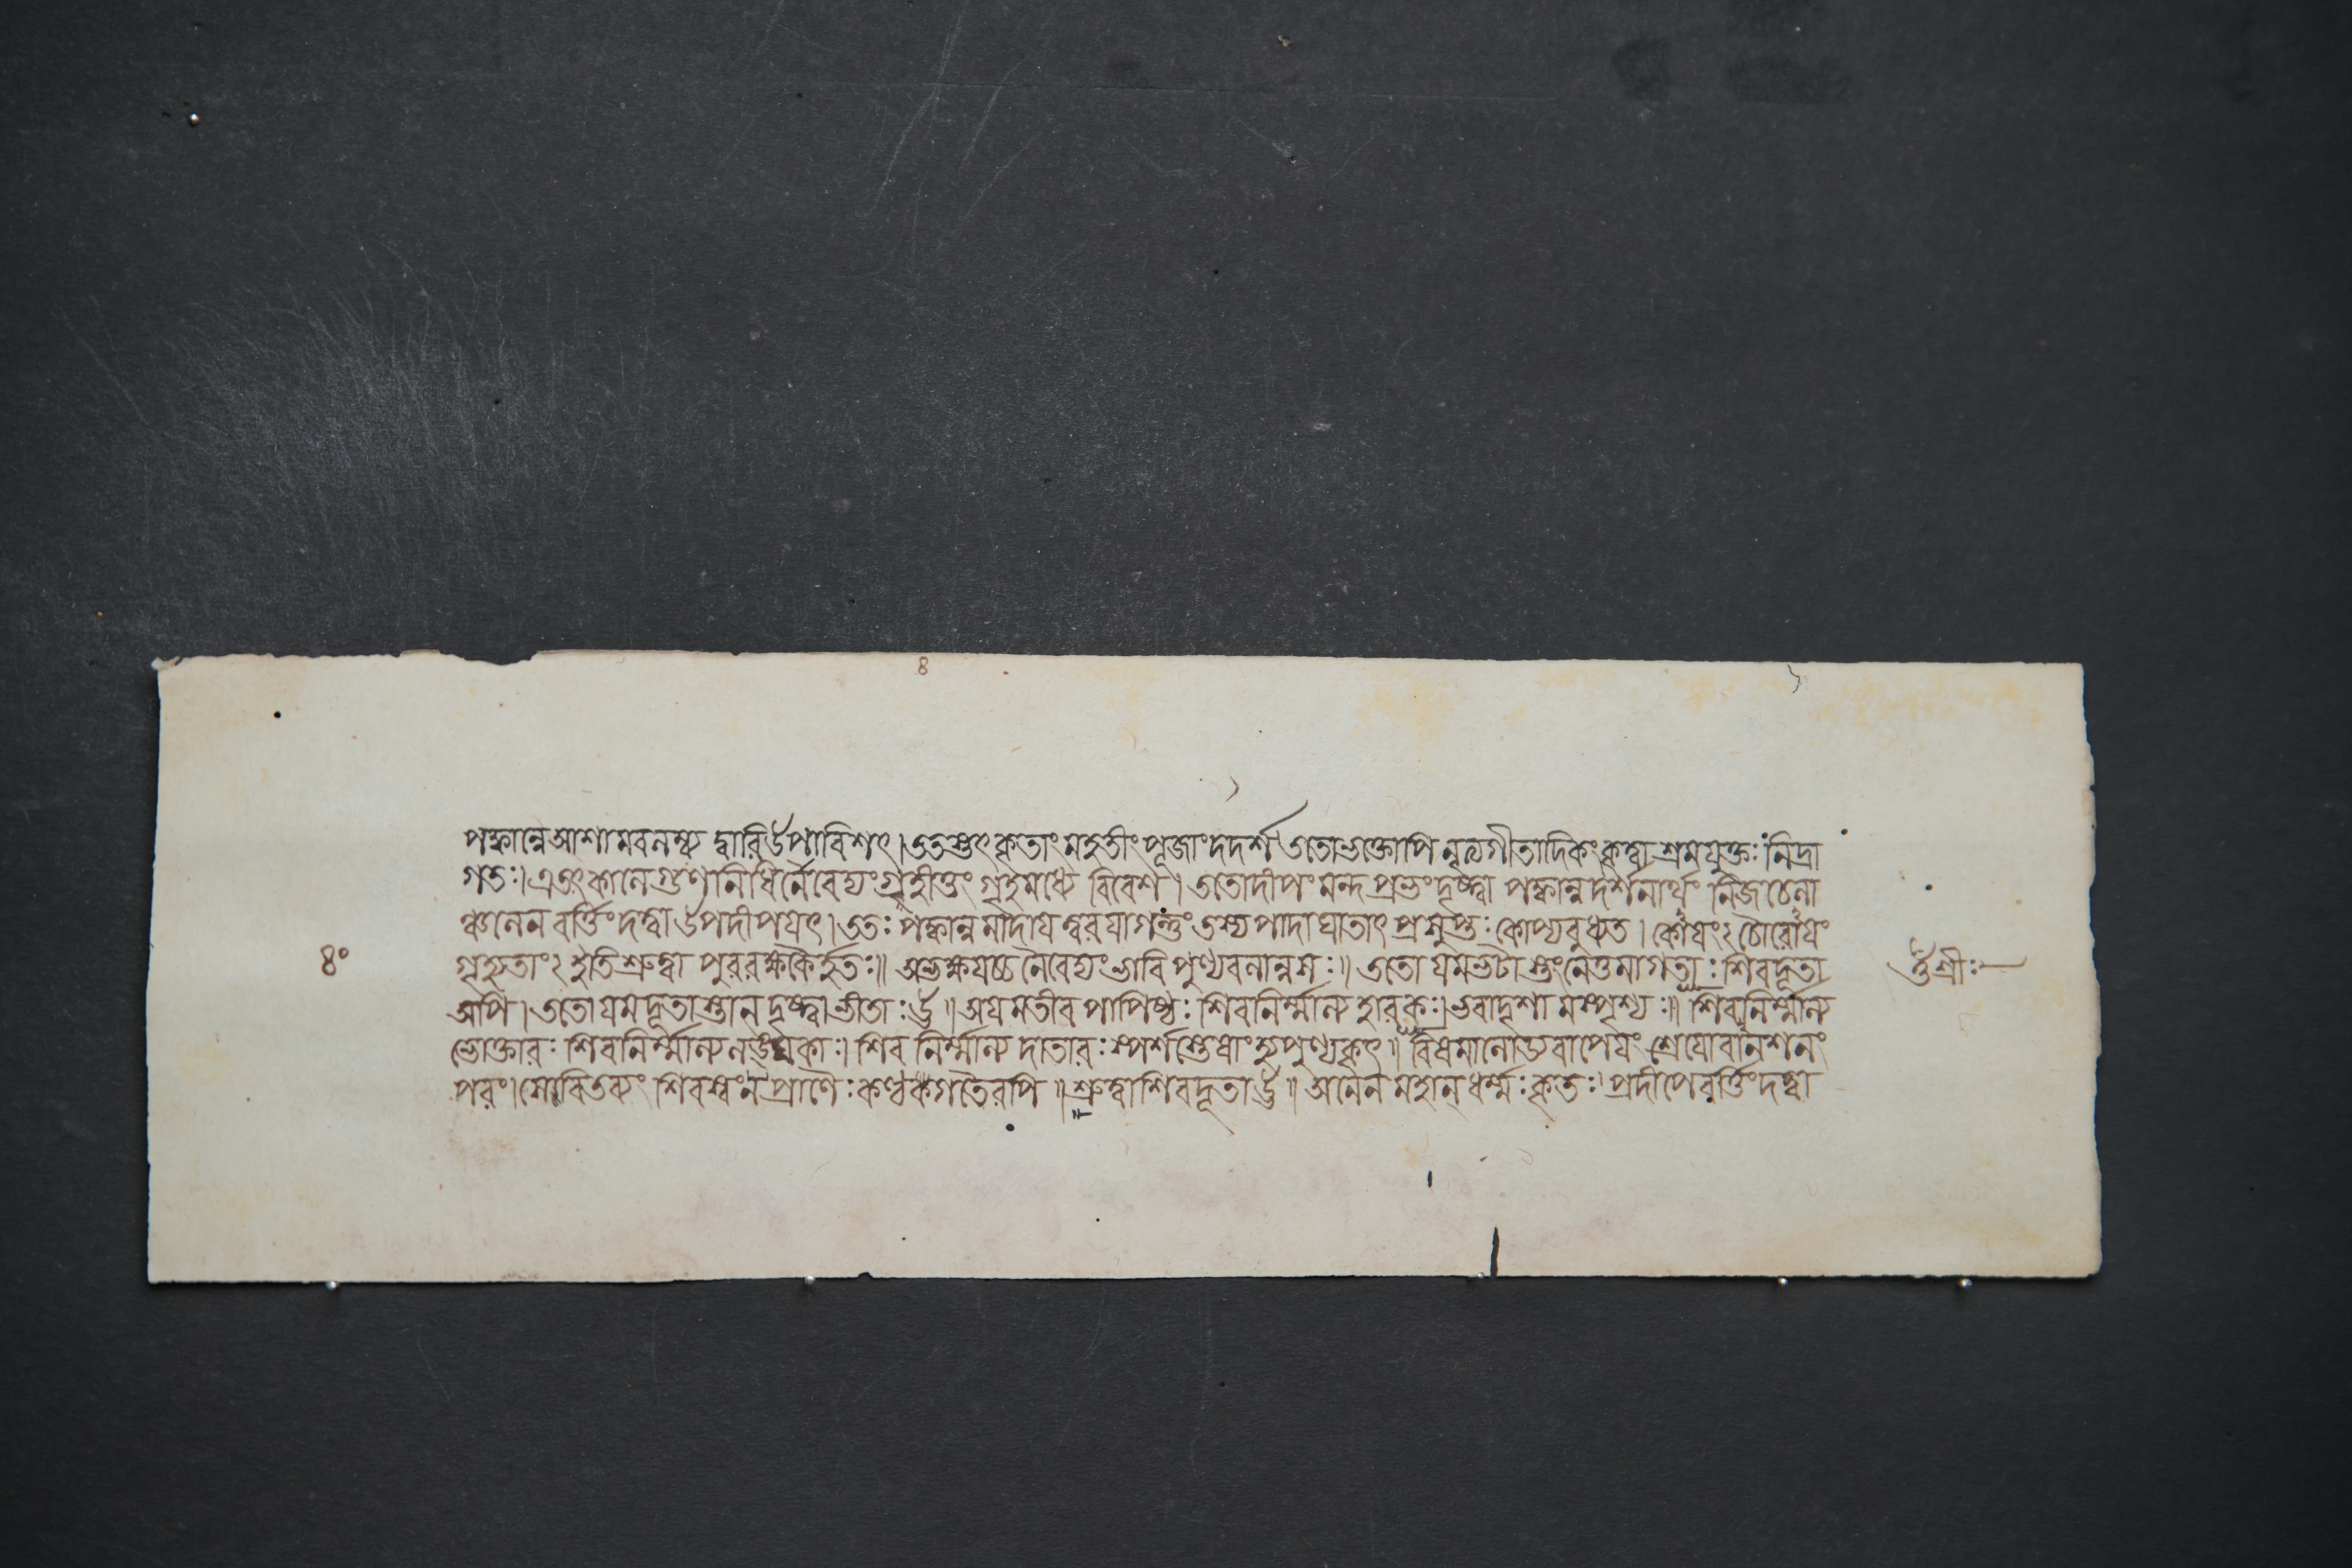 ৪
পক্বান্নে আশামবলম্ব্য দ্বারি উপাবিশৎ। ততস্তৎকৃতাং মহতীং পূজাং দদর্শ। ততো ভক্তোপি নৃত্যগীতাদিকং কৃত্বা শ্রমযুক্তঃ নিদ্রাং
গতঃ। এতৎ কালে গুণনিধির্নৈবেদ্যং গৃহীত্তুং গৃহমধ্যে বিবেশ। ততো দীপং মন্দপ্রভং দৃষ্ট্বা পক্বান্নদর্শনার্থং নিজচেলা
ঞ্চলেন বর্ত্তিং দত্ত্বা উপদীপযৎ। ততঃ পক্বান্নমাদায ত্বরযাগন্তুং তস্য পাদাঘাতাৎ প্রসুপ্তঃ কোপ্যবুধ্যত। কোযং২ চৌরোযং
গৃহ্যতাং২ ইতি শ্রুত্বা পুররক্ষকৈর্হতঃ॥ অভক্ষযচ্চ নৈবেদ্যং ভাবিপুণ্যবলান্নসঃ॥ ততো যমভটাস্তং নেতুমাগতাঃ শিবদূতা
অপি। ততো যমদূতাস্তান্ দৃষ্ট্বা ভীতাঃ ঊ॥ অযমতীব পাপিষ্ঠঃ শিবনির্ম্মাল্যহারকঃ। ভবাদৃশামস্পৃশ্যঃ॥ শিবনির্ম্মাল্য
ভোক্তারঃ শিবনির্ম্মাল্যলঙ্ঘকাঃ। শিবনির্ম্মাল্যদাতারঃ স্পর্শস্তেষাং হ্যপুণ্যকৃৎ॥ বিষমালোড্য বাপেযং শ্রেযো বানশনং
পরং। সেবিতব্যং শিবস্বং ন প্রাণৈঃ কণ্ঠকগতৈরপি॥ শ্রুত্বা শিবদূতা ঊ॥ অনেন মহান্ ধর্ম্মঃ কৃতঃ। প্রদীপে বর্ত্তিং দত্ত্বা
৪০
ওঁ শ্রীঃ